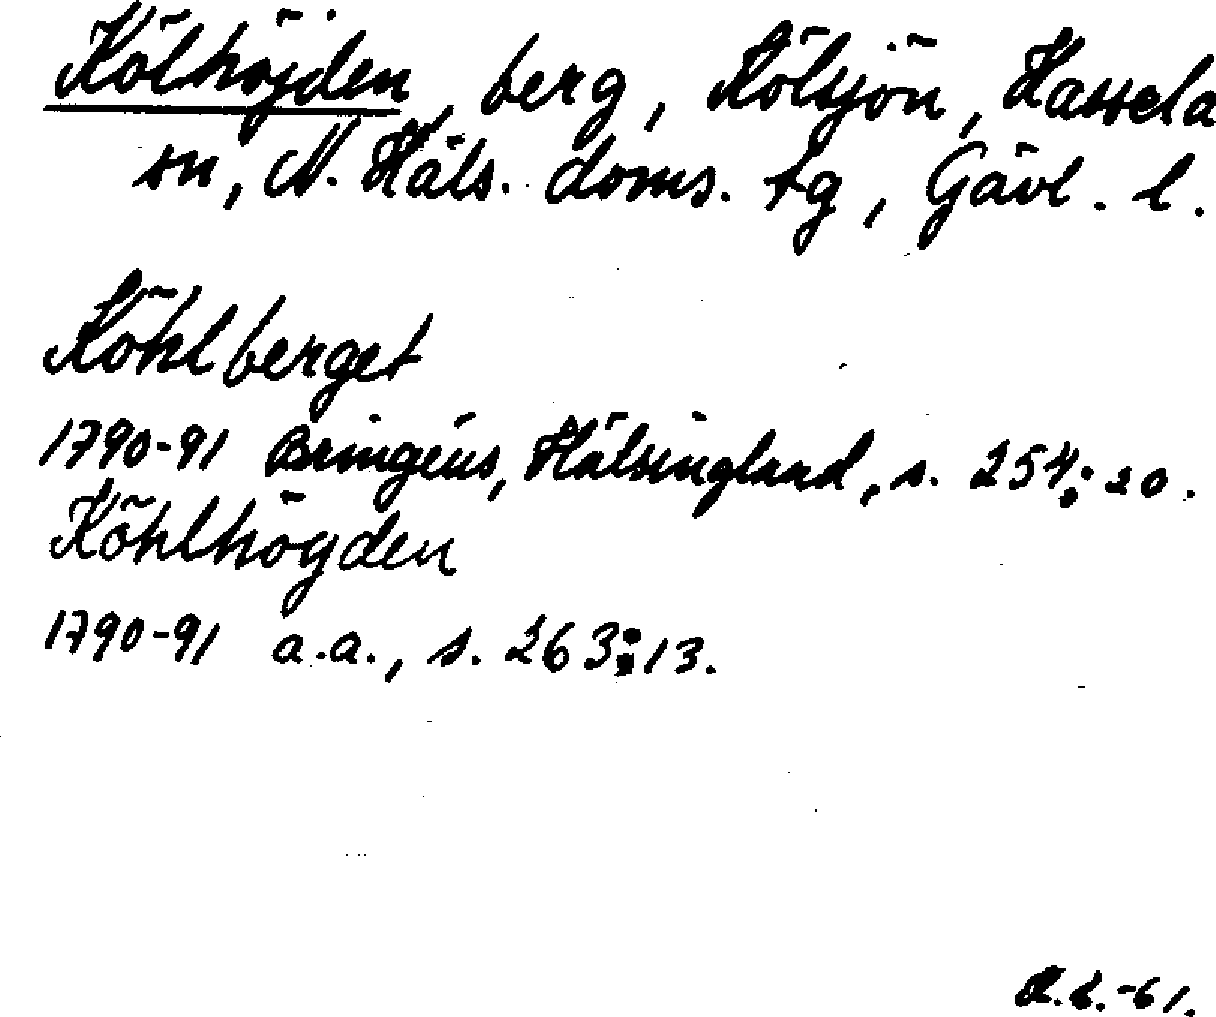 Kölhöjden, berg, Kölsjön, Hassela
sn, N. Häls. doms. tg, Gävl. l.
Köhlberget
1790-91 Bringéus, Hälsingland, s. 254:20.
Köhlhögden
1790-91 a.a., s. 263:13.
-61.